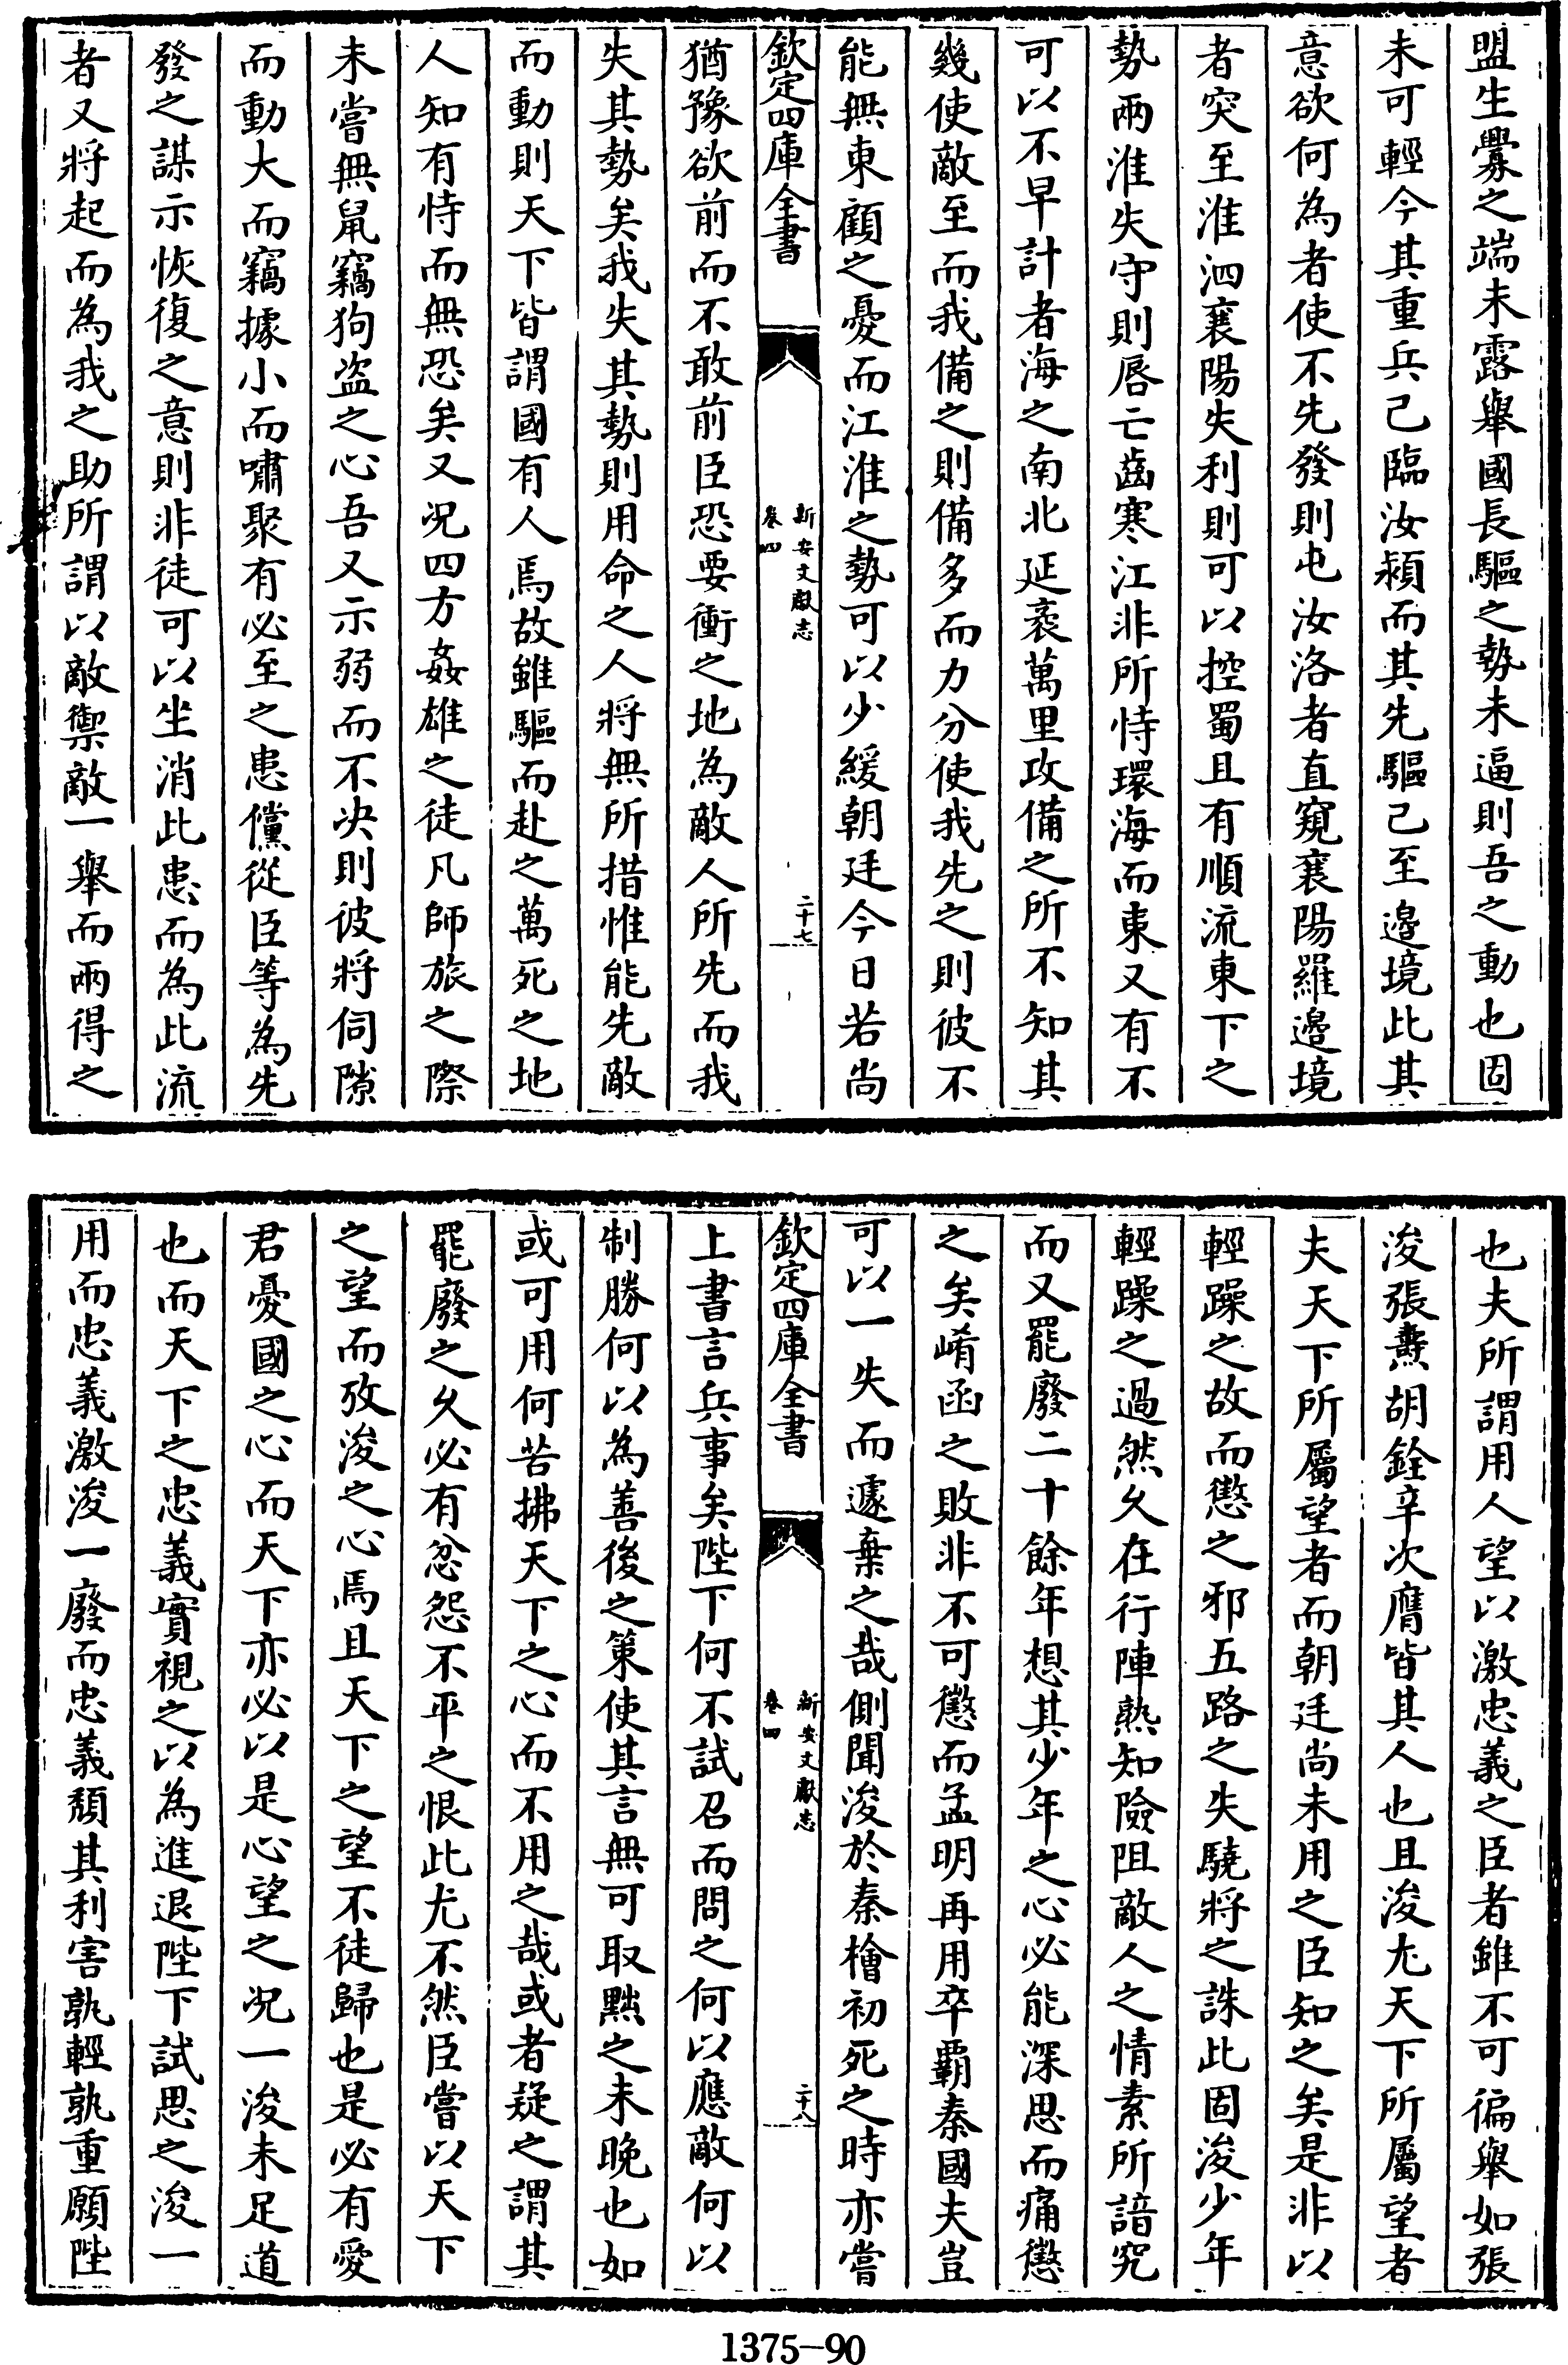 盟生釁之端未露舉國長驅之勢未逼則吾之動也固
未可輕今其重兵己臨汝潁而其先驅己至邉境此其
意欲何為者使不先發則屯汝洛者直窺襄陽羅邉境
者突至淮泗襄陽失利則可以控蜀且有順流東下之
勢兩淮失守則唇亡齒寒江非所恃環海而東又有不
可以不早計者海之南北延袤萬里攻備之所不知其
幾使敵至而我備之則備多而力分使我先之則彼不
能無東顧之憂而江淮之勢可以少緩朝廷今日若尚
欽定四庫全書
新安文獻志
卷四
二十七
猶豫欲前而不敢前臣恐要衝之地為敵人所先而我
失其勢矣我失其勢則用命之人將無所措惟能先敵
而動則天下皆謂國有人焉故雖驅而赴之萬死之地
人知有恃而無恐矣又况四方姦雄之徒凡師旅之際
未嘗無鼠竊狗盗之心吾又示弱而不决則彼將伺隙
而動大而竊據小而嘯聚有必至之患儻從臣等為先
發之謀示恢復之意則非徒可以坐消此患而為此流
者又將起而為我之助所謂以敵禦敵一舉而兩得之
也夫所謂用人望以激忠義之臣者雖不可徧舉如張
浚張燾胡銓辛次膺皆其人也且浚尤天下所屬望者
夫天下所屬望者而朝廷尚未用之臣知之矣是非以
輕躁之故而懲之邪五路之失驍將之誅此固浚少年
輕躁之過然久在行陣熟知險阻敵人之情素所諳究
而又罷廢二十餘年想其少年之心必能深思而痛懲
之矣崤函之敗非不可懲而孟明再用卒覇秦國夫豈
可以一失而遽棄之哉側聞浚於秦檜初死之時亦嘗
欽定四庫全書
新安文獻志
卷四
二十八
上書言兵事矣陛下何不試召而問之何以應敵何以
制勝何以為善後之策使其言無可取黜之未晚也如
或可用何苦拂天下之心而不用之哉或者疑之謂其
罷廢之久必有忿怨不平之恨此尤不然臣嘗以天下
之望而攷浚之心焉且天下之望不徒歸也是必有愛
君憂國之心而天下亦必以是心望之况一浚未足道
也而天下之忠義實視之以為進退陛下試思之浚一
用而忠義激浚一廢而忠義頹其利害孰輕孰重願陛
1375-90